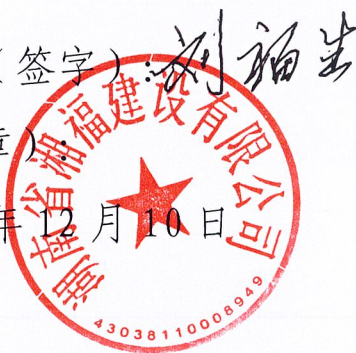 （签字）：刘福生
章）：
年12月10日
湖南省湘福建设有限公司
43038110008949